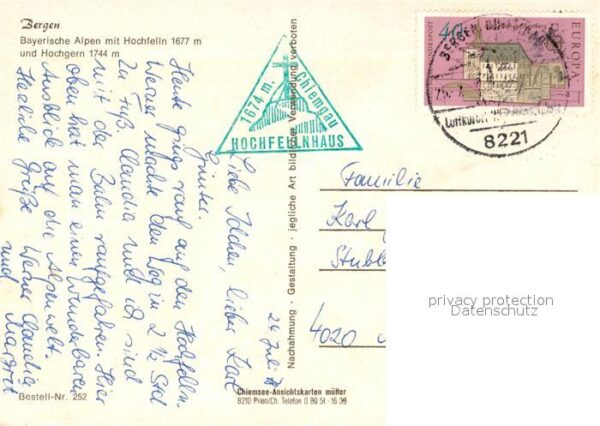 Bergen
Bayerische Alpen mit Hochfelln 1677 m
und Hochgern 1744 m
24. Juli
Liebe lieber Karl
Günter.
Heute ging's rauf auf den Hochfelln.
Werner machte den Weg in 2 ½ Std
zu Fuß. Claudia und ich sind
mit der Bahn raufgefahren. Hier
oben hat man einen wunderbaren
Ausblick auf die Alpenwelt.
Herzliche Grüße Werner Claudia
und Margret
Bestell-Nr. 252
1674 m.
Chiemgau
HOCHFELLNHAUS
Nachahmung · Gestaltung · jegliche Art bildlicher Verwendung verboten
Chiemsee-Ansichtskarten müller
8210 Prien/Ch. Telefon 0 80 51 - 16 38
DEUTSCHE BUNDESPOST
40
EUROPA
BERGEN
Luftkurort
8221
Familie
Karl
4020
privacy protection
Datenschutz